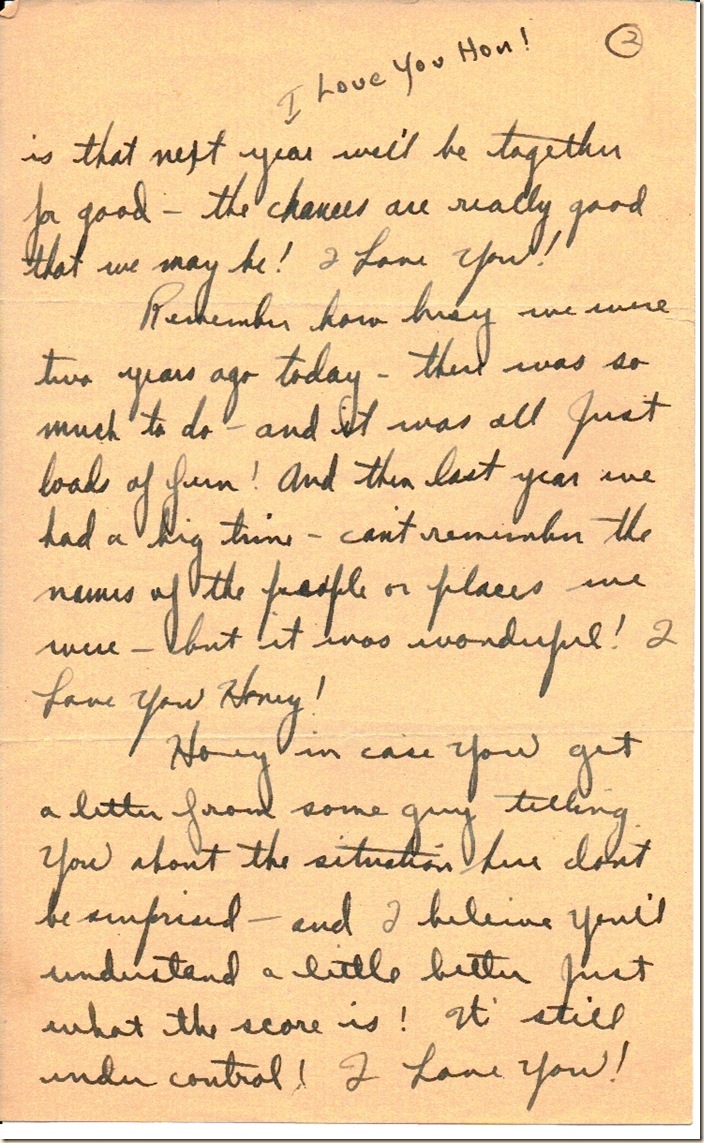 I Love You Hon!
2
is that next year we'll be together
for good - the chances are really good
that we may be! I Love You!
Remember how busy we were
two years ago today - there was so
much to do - and it was all just
loads of fun! And then last year we
had a big time - can't remember the
names of the people or places we
were - but it was wonderful! I
Love You Honey!
Honey in case you get
a letter from some guy telling
you about the situation here don't
be surprised - and I beleive you'll
understand a little better just
what the score is! It' still
under control! I Love You!